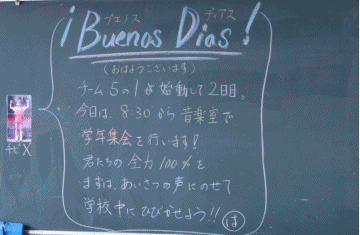 ブエノス ディアス
¡Buenos Dias!
(おはようございます)
チーム5の1が始動して2日目。
今日は、8:30から音楽室で
学年集会を行います!
君たちの全力100%を
まずは、あいさつの声にのせて
学校中にひびかせよう!! は
チビX